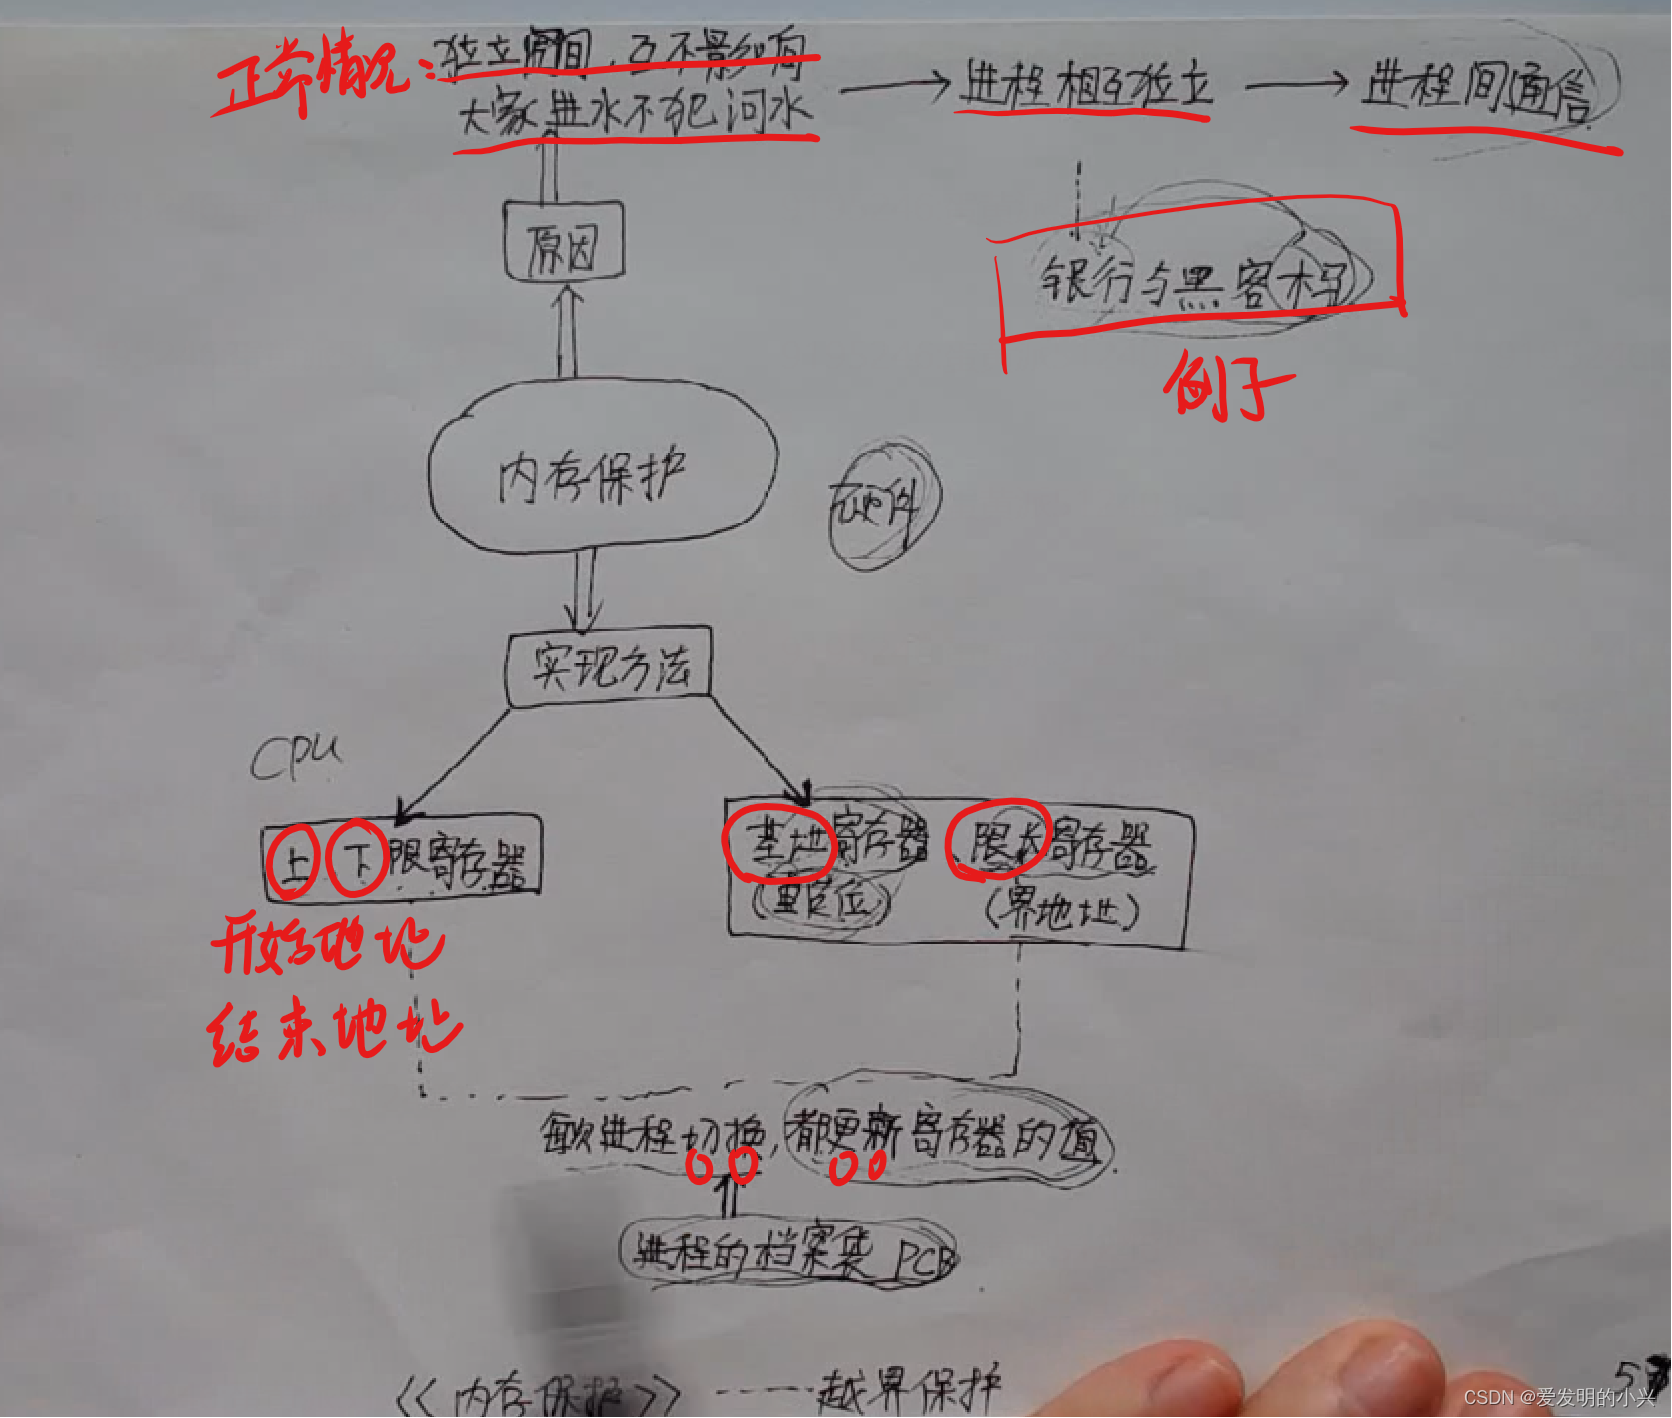 正常情况：独立空间，互不影响
大家井水不犯河水
进程相互独立
进程间通信
原因
银行与黑客木马
例子
内存保护
硬件
实现方法
CPU
上下限寄存器
开始地址
结束地址
基址寄存器 限长寄存器
(重定位) (界地址)
每次进程切换，都更新寄存器的值
进程的档案袋 PCB
《内存保护》 ------越界保护
CSDN @爱发明的小兴